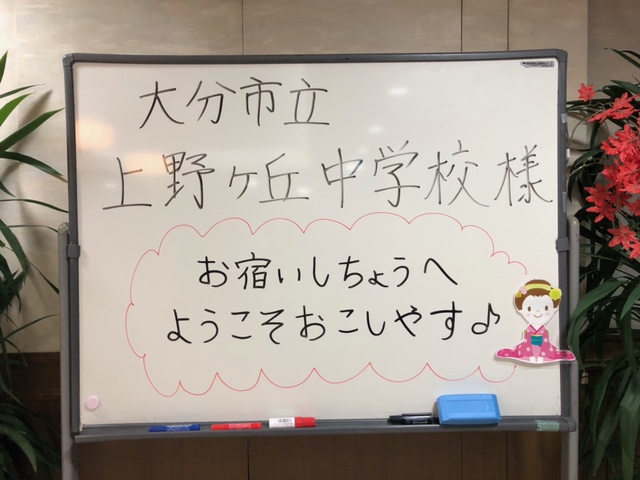 大分市立
上野ヶ丘中学校様
お宿いしちょうへ
ようこそおこしやす♪